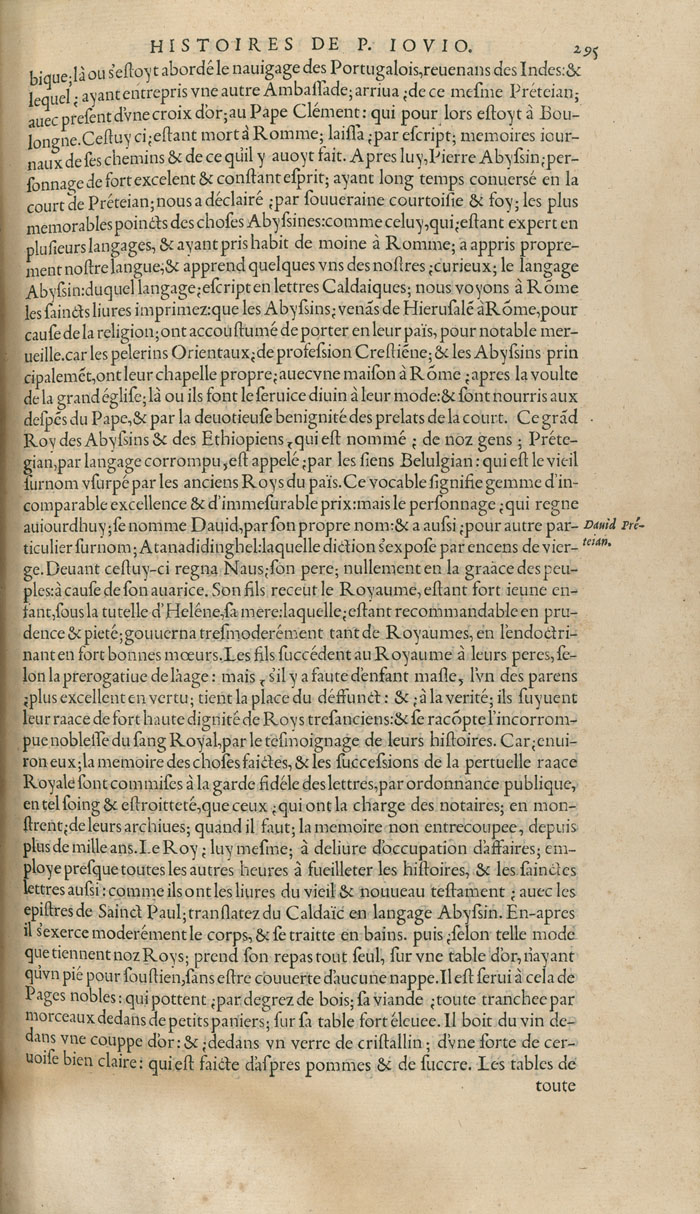 HISTOIRES DE P. IOVIO. 295
bique; là ou s'eſtoyt abordé le nauigage des Portugalois, reuenans des Indes: &
lequel; ayant entrepris vne autre Ambaſſade; arriua; de ce meſme Préteian;
auec preſent d'vne croix d'or; au Pape Clément: qui pour lors eſtoyt à Bou-
longne. Ceſtuy ci; eſtant mort à Romme; laiſſa; par eſcript; memoires iour-
naux de ſes chemins & de ce qu'il y auoyt fait. Apres luy, Pierre Abyſsin; per-
ſonnage de fort excelent & conſtant eſprit; ayant long temps conuersé en la
court de Préteian; nous a déclairé; par ſouueraine courtoiſie & foy; les plus
memorables poincts des choſes Abyſsines: comme celuy, qui; eſtant expert en
pluſieurs langages, & ayant pris habit de moine à Romme; a appris propre-
ment noſtre langue; & apprend quelques vns des noſtres; curieux; le langage
Abyſsin: duquel langage; eſcript en lettres Caldaiques; nous voyons à Rõme
les ſaincts liures imprimez: que les Abyſsins; venãs de Hieruſalẽ à Rõme, pour
cauſe de la religion; ont accouſtumé de porter en leur païs, pour notable mer-
ueille. car les pelerins Orientaux; de profeſsion Creſtiẽne; & les Abyſsins prin
cipalemẽt, ont leur chapelle propre; auecvne maiſon à Rõme; apres la voulte
de la grand égliſe; là ou ils font le ſeruice diuin à leur mode: & ſont nourris aux
deſpẽs du Pape, & par la deuotieuſe benignité des prelats de la court. Ce grãd
Roy des Abyſsins & des Ethiopiens, qui eſt nommé; de noz gens; Préte-
gian, par langage corrompu, eſt appelé; par les ſiens Belulgian: qui eſt le vieil
ſurnom vſurpé par les anciens Roys du païs. Ce vocable ſignifie gemme d'in-
comparable excellence & d'immeſurable prix: mais le perſonnage; qui regne
auiourdhuy; ſe nomme Dauid, par ſon propre nom: & a auſsi; pour autre par-
Dauid Pré-
teian.
ticulier ſurnom; Atanadidinghel: laquelle diction s'expoſe par encens de vier-
ge. Deuant ceſtuy-ci regna Naus; ſon pere; nullement en la graàce des peu-
ples: à cauſe de ſon auarice. Son fils receut le Royaume, eſtant fort ieune en-
fant, ſous la tutelle d'Heléne, ſa mere: laquelle; eſtant recommandable en pru-
dence & pieté; gouuerna treſmoderément tant de Royaumes, en l'endoctri-
nant en fort bonnes mœurs. Les fils ſuccédent au Royaume à leurs peres, ſe-
lon la prerogatiue de l'aage: mais, s'il y a faute d'enfant maſle, l'vn des parens
; plus excellent en vertu; tient la place du déffunct: &; à la verité; ils ſuyuent
leur raace de fort haute dignité de Roys treſanciens: & ſe racõpte l'incorrom-
pue nobleſſe du ſang Royal, par le teſmoignage de leurs hiſtoires. Car; enui-
ron eux; la memoire des choſes faictes, & les ſucceſsions de la pertuelle raace
Royale ſont commiſes à la garde fidéle des lettres, par ordonnance publique,
en tel ſoing & eſtroitteté, que ceux; qui ont la charge des notaires; en mon-
ſtrent; de leurs archiues; quand il faut; la memoire non entrecoupee, depuis
plus de mille ans. Le Roy; luy meſme; à deliure d'occupation d'affaires; em-
ploye preſque toutes les autres heures à fueilleter les hiſtoires, & les ſainctes
lettres auſsi: comme ils ont les liures du vieil & nouueau teſtament; auec les
epiſtres de Sainct Paul; tranſlatez du Caldaïc en langage Abyſsin. En-apres
il s'exerce moderément le corps, & ſe traitte en bains. puis; ſelon telle mode
que tiennent noz Roys; prend ſon repas tout ſeul, ſur vne table d'or, n'ayant
qu'vn pié pour ſouſtien, ſans eſtre couuerte d'aucune nappe. Il eſt ſerui à cela de
Pages nobles: qui pottent; par degrez de bois; ſa viande; toute tranchee par
morceaux dedans de petits paniers; ſur ſa table fort éleuee. Il boit du vin de-
dans vne couppe d'or: &; dedans vn verre de criſtallin; d'vne ſorte de cer-
uoiſe bien claire: qui eſt faicte d'aſpres pommes & de ſuccre. Les tables de
toute